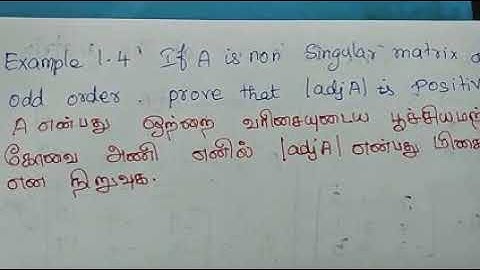 Example 1.4 If A is non Singular matrix
odd order. prove that |adjA| is Positiv
A என்பது ஒற்றை வரிசையுடைய பூச்சியமற்
கோவை அணி எனில் |adjA| என்பது மிகை
என நிறுவுக.